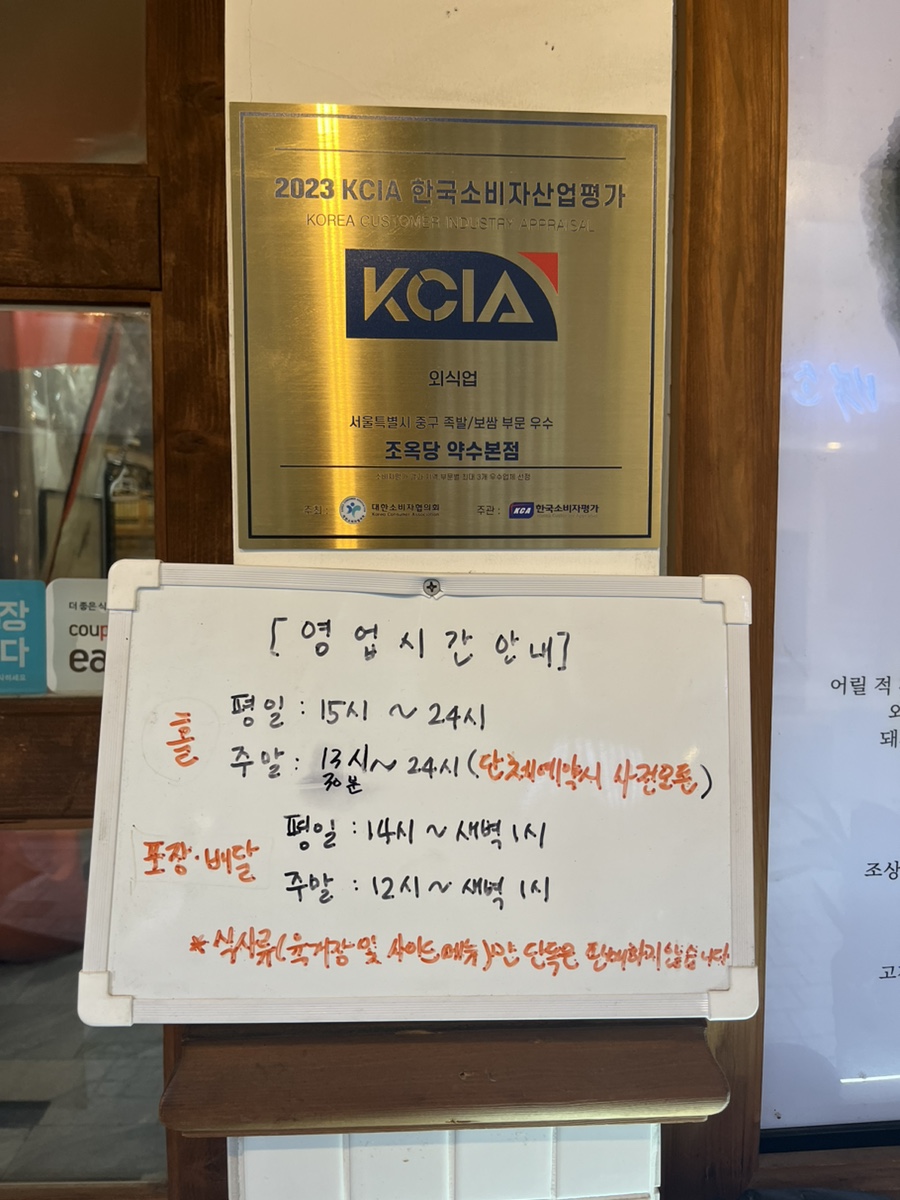 2023 KCIA 한국소비자산업평가
KOREA CUSTOMER INDUSTRY APPRAISAL
KCIA
외식업
서울특별시 중구 족발/보쌈 부문 우수
조옥당 약수본점
주최 : 대한소비자협의회
Korea Consumer Association
주관 : KCA 한국소비자평가
[영업시간안내]
홀
평일 : 15시 ~ 24시
주말 : 13시 30분 ~ 24시 (단체예약시 사전오픈)
포장·배달
평일 : 14시 ~ 새벽 1시
주말 : 12시 ~ 새벽 1시
* 식사류(육개장 및 사이드메뉴)만 단독은 판매하지않습니다
장
다
더 좋은 식
coup
ea
어릴 적
외
돼
조상
고